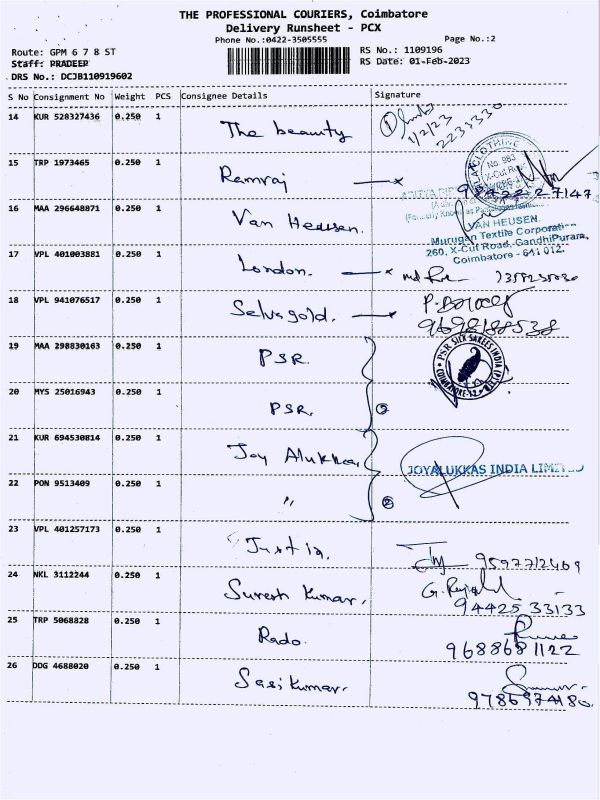 THE PROFESSIONAL COURIERS, Coimbatore
Delivery Runsheet - PCX
Phone No.:0422-3505555 Page No.:2
Route: GPM 6 7 8 ST RS No.: 1109196
Staff: PRADEEP RS Date: 01-Feb-2023
DRS No.: DCJB110919602
S No Consignment No Weight PCS Consignee Details Signature
14 KUR 528327436 0.250 1 The beauty 1/2/23 2233330
15 TRP 1973465 0.250 1 Ramraj 94422 27147
No. 963
X-Cut Road
16 MAA 296648871 0.250 1 Van Heusen.
VAN HEUSEN.
Murugan Textile Corporation
260, X-Cut Road, GandhiPuram,
Coimbatore - 641 012.
17 VPL 401003881 0.250 1 London.
18 VPL 941076517 0.250 1 Selvagold.
19 MAA 298830163 0.250 1 PSR.
PSR SILK SAREES INDIA (P) LTD
COIMBATORE-12
20 MYS 25016943 0.250 1 PSR. 2
21 KUR 694530814 0.250 1 Joy Alukkas
JOYALUKKAS INDIA LIMITED
22 PON 9513409 0.250 1 " 2
23 VPL 401257173 0.250 1 Justin. 9597712469
24 NKL 3112244 0.250 1 Suresh Kumar. 94425 33133
25 TRP 5068828 0.250 1 Rado. 9688681122
26 DDG 4688020 0.250 1 Sasikumar. 9786974180